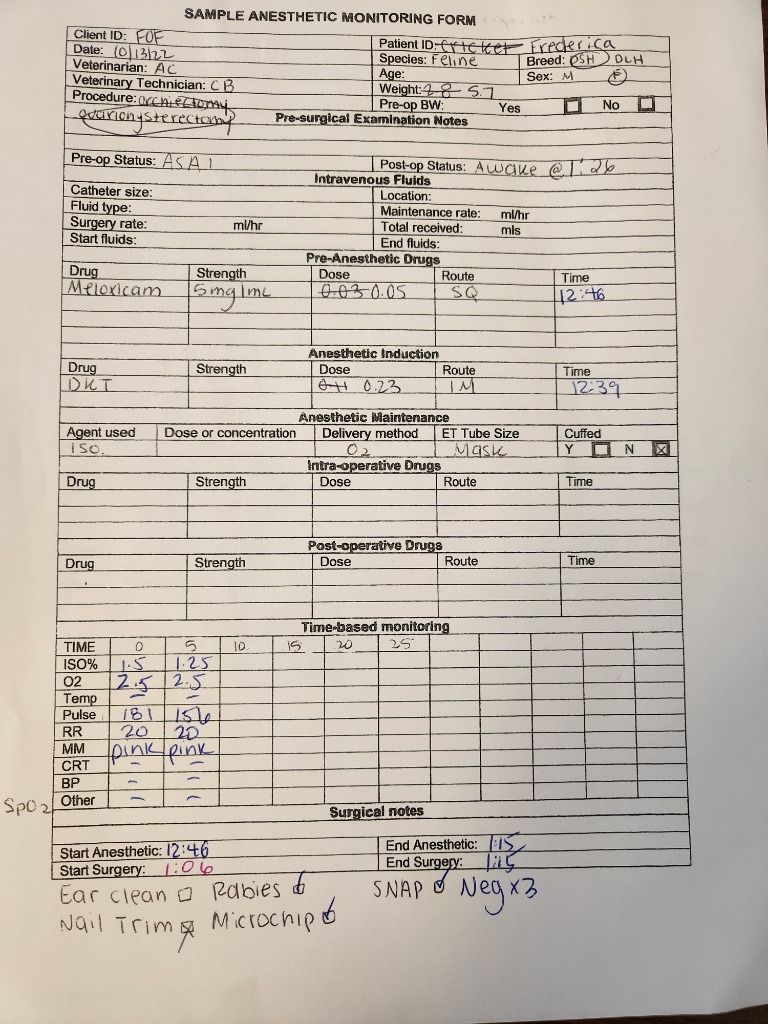 SAMPLE ANESTHETIC MONITORING FORM
Client ID: FOF Patient ID: Cricket Frederica
Date: 10/13/22 Species: Feline Breed: DSH DLH
Veterinarian: AC Age: Sex: M F
Veterinary Technician: CB Weight: 2.8 5.7
Procedure: orchiectomy Pre-op BW: Yes No
ovariohysterectomy Pre-surgical Examination Notes
Pre-op Status: ASA 1 Post-op Status: Awake @ 1:26
Intravenous Fluids
Catheter size: Location:
Fluid type: Maintenance rate: ml/hr
Surgery rate: ml/hr Total received: mls
Start fluids: End fluids:
Pre-Anesthetic Drugs
Drug Strength Dose Route Time
Meloxicam 5mg/mL 0.03 0.05 SQ 12:46
Anesthetic Induction
Drug Strength Dose Route Time
DKT 0.11 0.23 IM 12:39
Anesthetic Maintenance
Agent used Dose or concentration Delivery method ET Tube Size Cuffed
ISO. O2 Mask Y N
Intra-operative Drugs
Drug Strength Dose Route Time
Post-operative Drugs
Drug Strength Dose Route Time
Time-based monitoring
TIME 0 5 10 15 20 25
ISO% 1.5 1.25
O2 2.5 2.5
Temp – –
Pulse 181 156
RR 20 20
MM pink pink
CRT – –
BP – –
SpO2 Other – –
Surgical notes
Start Anesthetic: 12:46 End Anesthetic: 1:15
Start Surgery: 1:06 End Surgery: 1:15
Ear clean Rabies SNAP Neg x3
Nail Trim Microchip